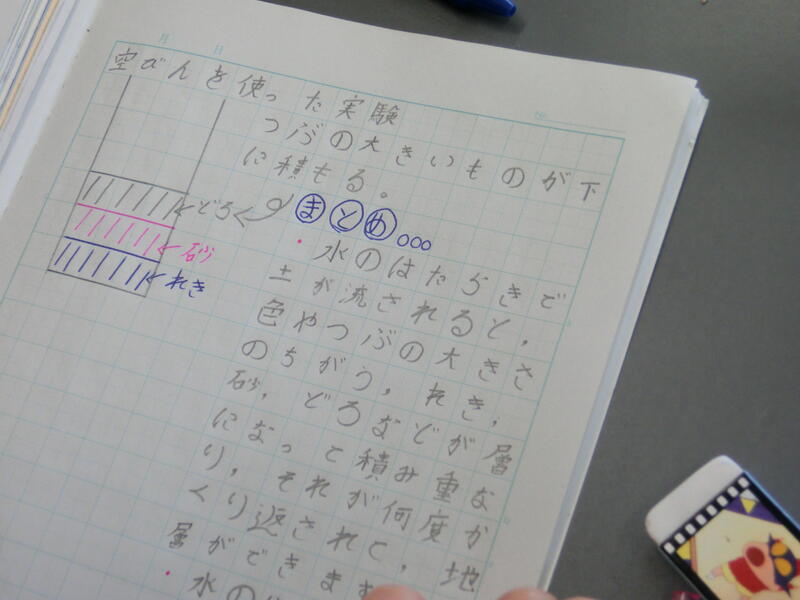 月 日
空びんを使った実験
つぶの大きいものが下
に積もる。
どろ
砂
れき
まとめ...
・水のはたらきで
土が流されると,
色やつぶの大きさ
のちがう,れき,
砂,どろなどが層
になって積み重な
り,それが何度か
くり返されて,地
層ができます
・水の